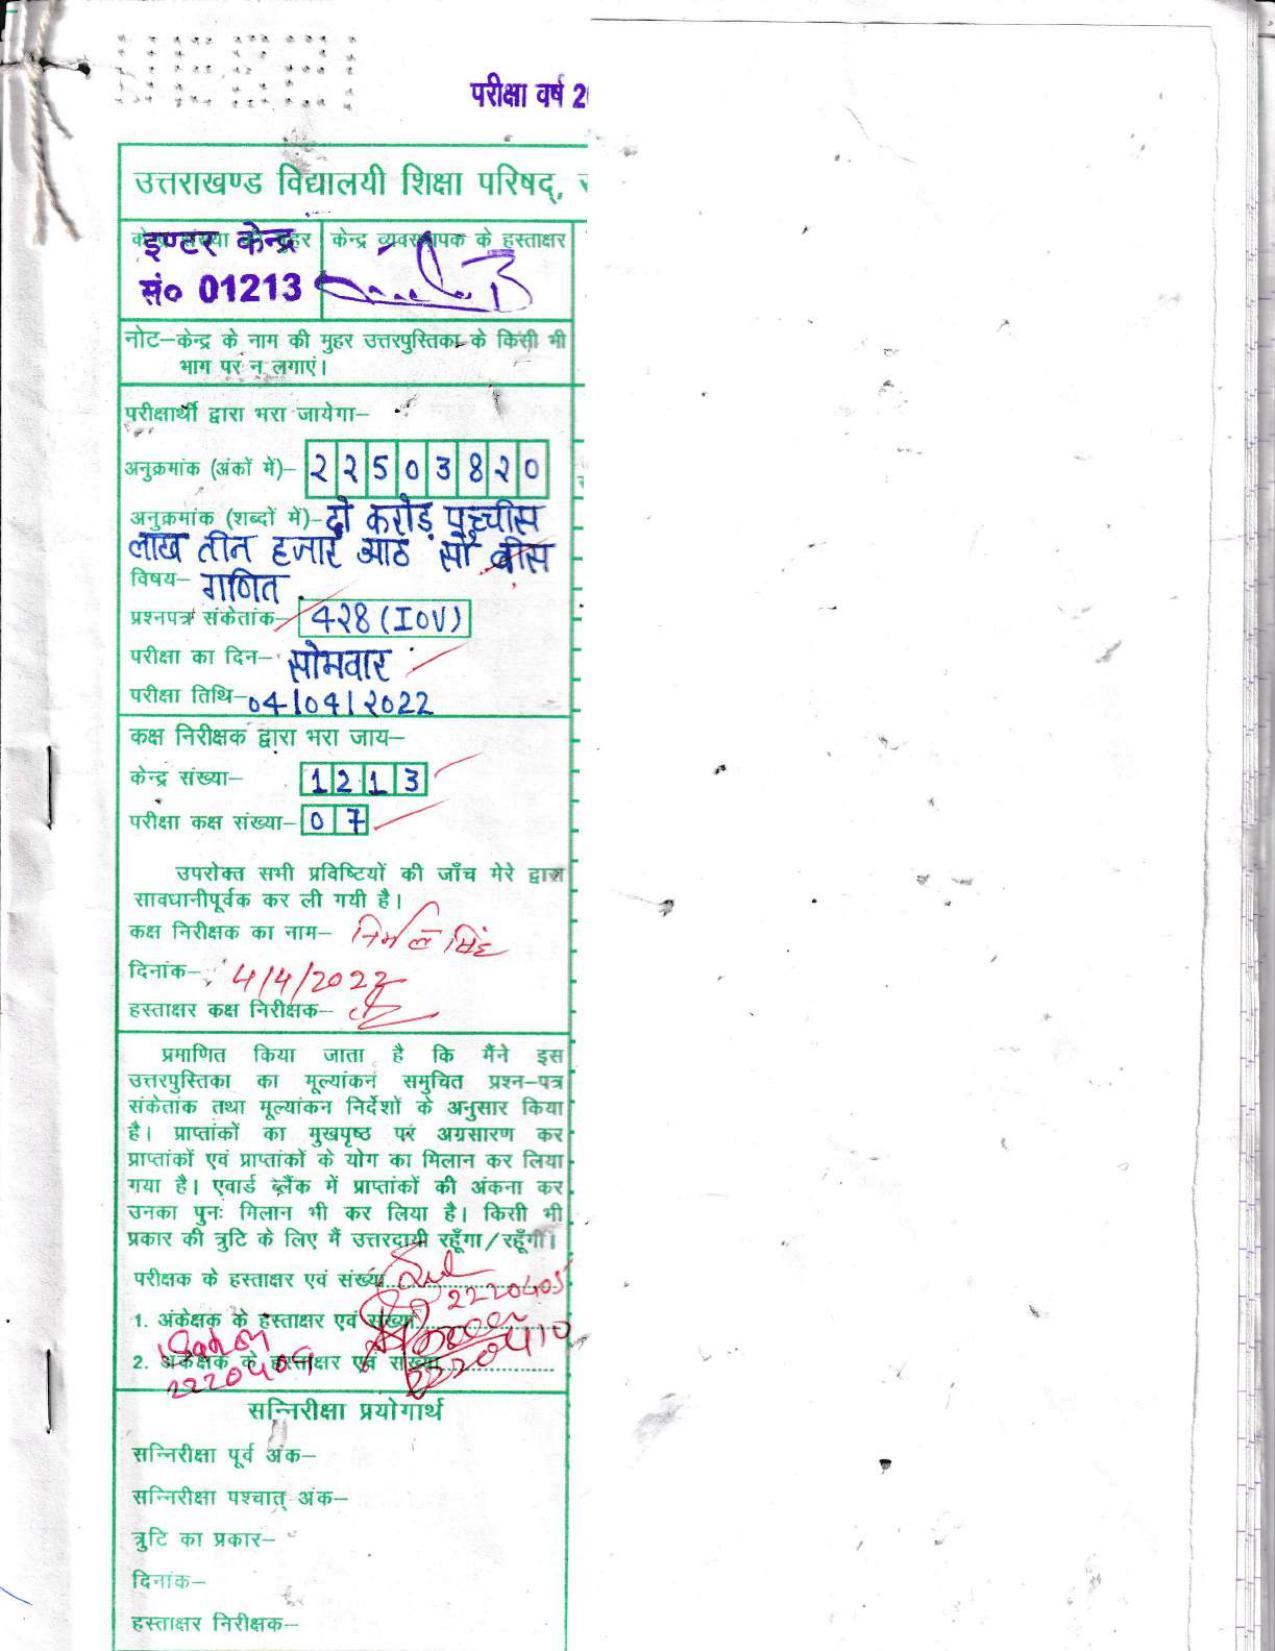 परीक्षा वर्ष 2
उत्तराखण्ड विद्यालयी शिक्षा परिषद्,
इण्टर केन्द्र
सं० 01213
केन्द्र व्यवस्थापक के हस्ताक्षर
नोट–केन्द्र के नाम की मुहर उत्तरपुस्तिका के किसी भी
भाग पर न लगाएं।
परीक्षार्थी द्वारा भरा जायेगा–
अनुक्रमांक (अंकों में)– २२5038२0
अनुक्रमांक (शब्दों में)– दो करोड़ पच्चीस
लाख तीन हजार आठ सौ बीस
विषय– गणित
प्रश्नपत्र संकेतांक– 4२8 (IOV)
परीक्षा का दिन– सोमवार
परीक्षा तिथि– 04/04/2022
कक्ष निरीक्षक द्वारा भरा जाय–
केन्द्र संख्या– 1213
परीक्षा कक्ष संख्या– 07
उपरोक्त सभी प्रविष्टियों की जाँच मेरे द्वारा
सावधानीपूर्वक कर ली गयी है।
कक्ष निरीक्षक का नाम– निर्मल सिंह
दिनांक– 4/4/2022
हस्ताक्षर कक्ष निरीक्षक–
प्रमाणित किया जाता है कि मैंने इस
उत्तरपुस्तिका का मूल्यांकन समुचित प्रश्न-पत्र
संकेतांक तथा मूल्यांकन निर्देशों के अनुसार किया
है। प्राप्तांकों का मुखपृष्ठ पर अग्रसारण कर
प्राप्तांकों एवं प्राप्तांकों के योग का मिलान कर लिया
गया है। एवार्ड ब्लैंक में प्राप्तांकों की अंकना कर
उनका पुनः मिलान भी कर लिया है। किसी भी
प्रकार की त्रुटि के लिए मैं उत्तरदायी रहूँगा/रहूँगी।
परीक्षक के हस्ताक्षर एवं संख्या
2220405
1. अंकेक्षक के हस्ताक्षर एवं संख्या
2220410
2. अंकेक्षक के हस्ताक्षर एवं संख्या
2220409
सन्निरीक्षा प्रयोगार्थ
सन्निरीक्षा पूर्व अंक–
सन्निरीक्षा पश्चात् अंक–
त्रुटि का प्रकार–
दिनांक–
हस्ताक्षर निरीक्षक–